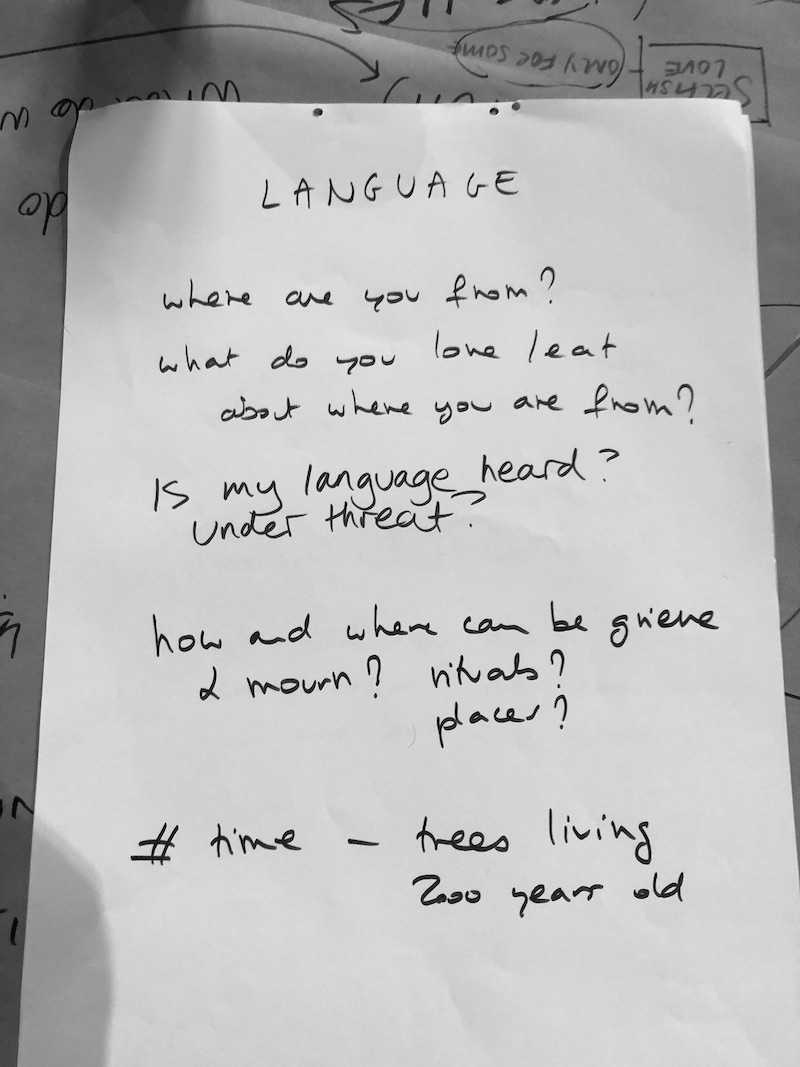 ONLY FOR SOME
SELFISH
LOVE
do
LANGUAGE
where are you from?
what do you love / eat
about where you are from?
Is my language heard?
under threat?
how and where can be grieve
& mourn? rituals?
places?
# time – trees living
2000 years old